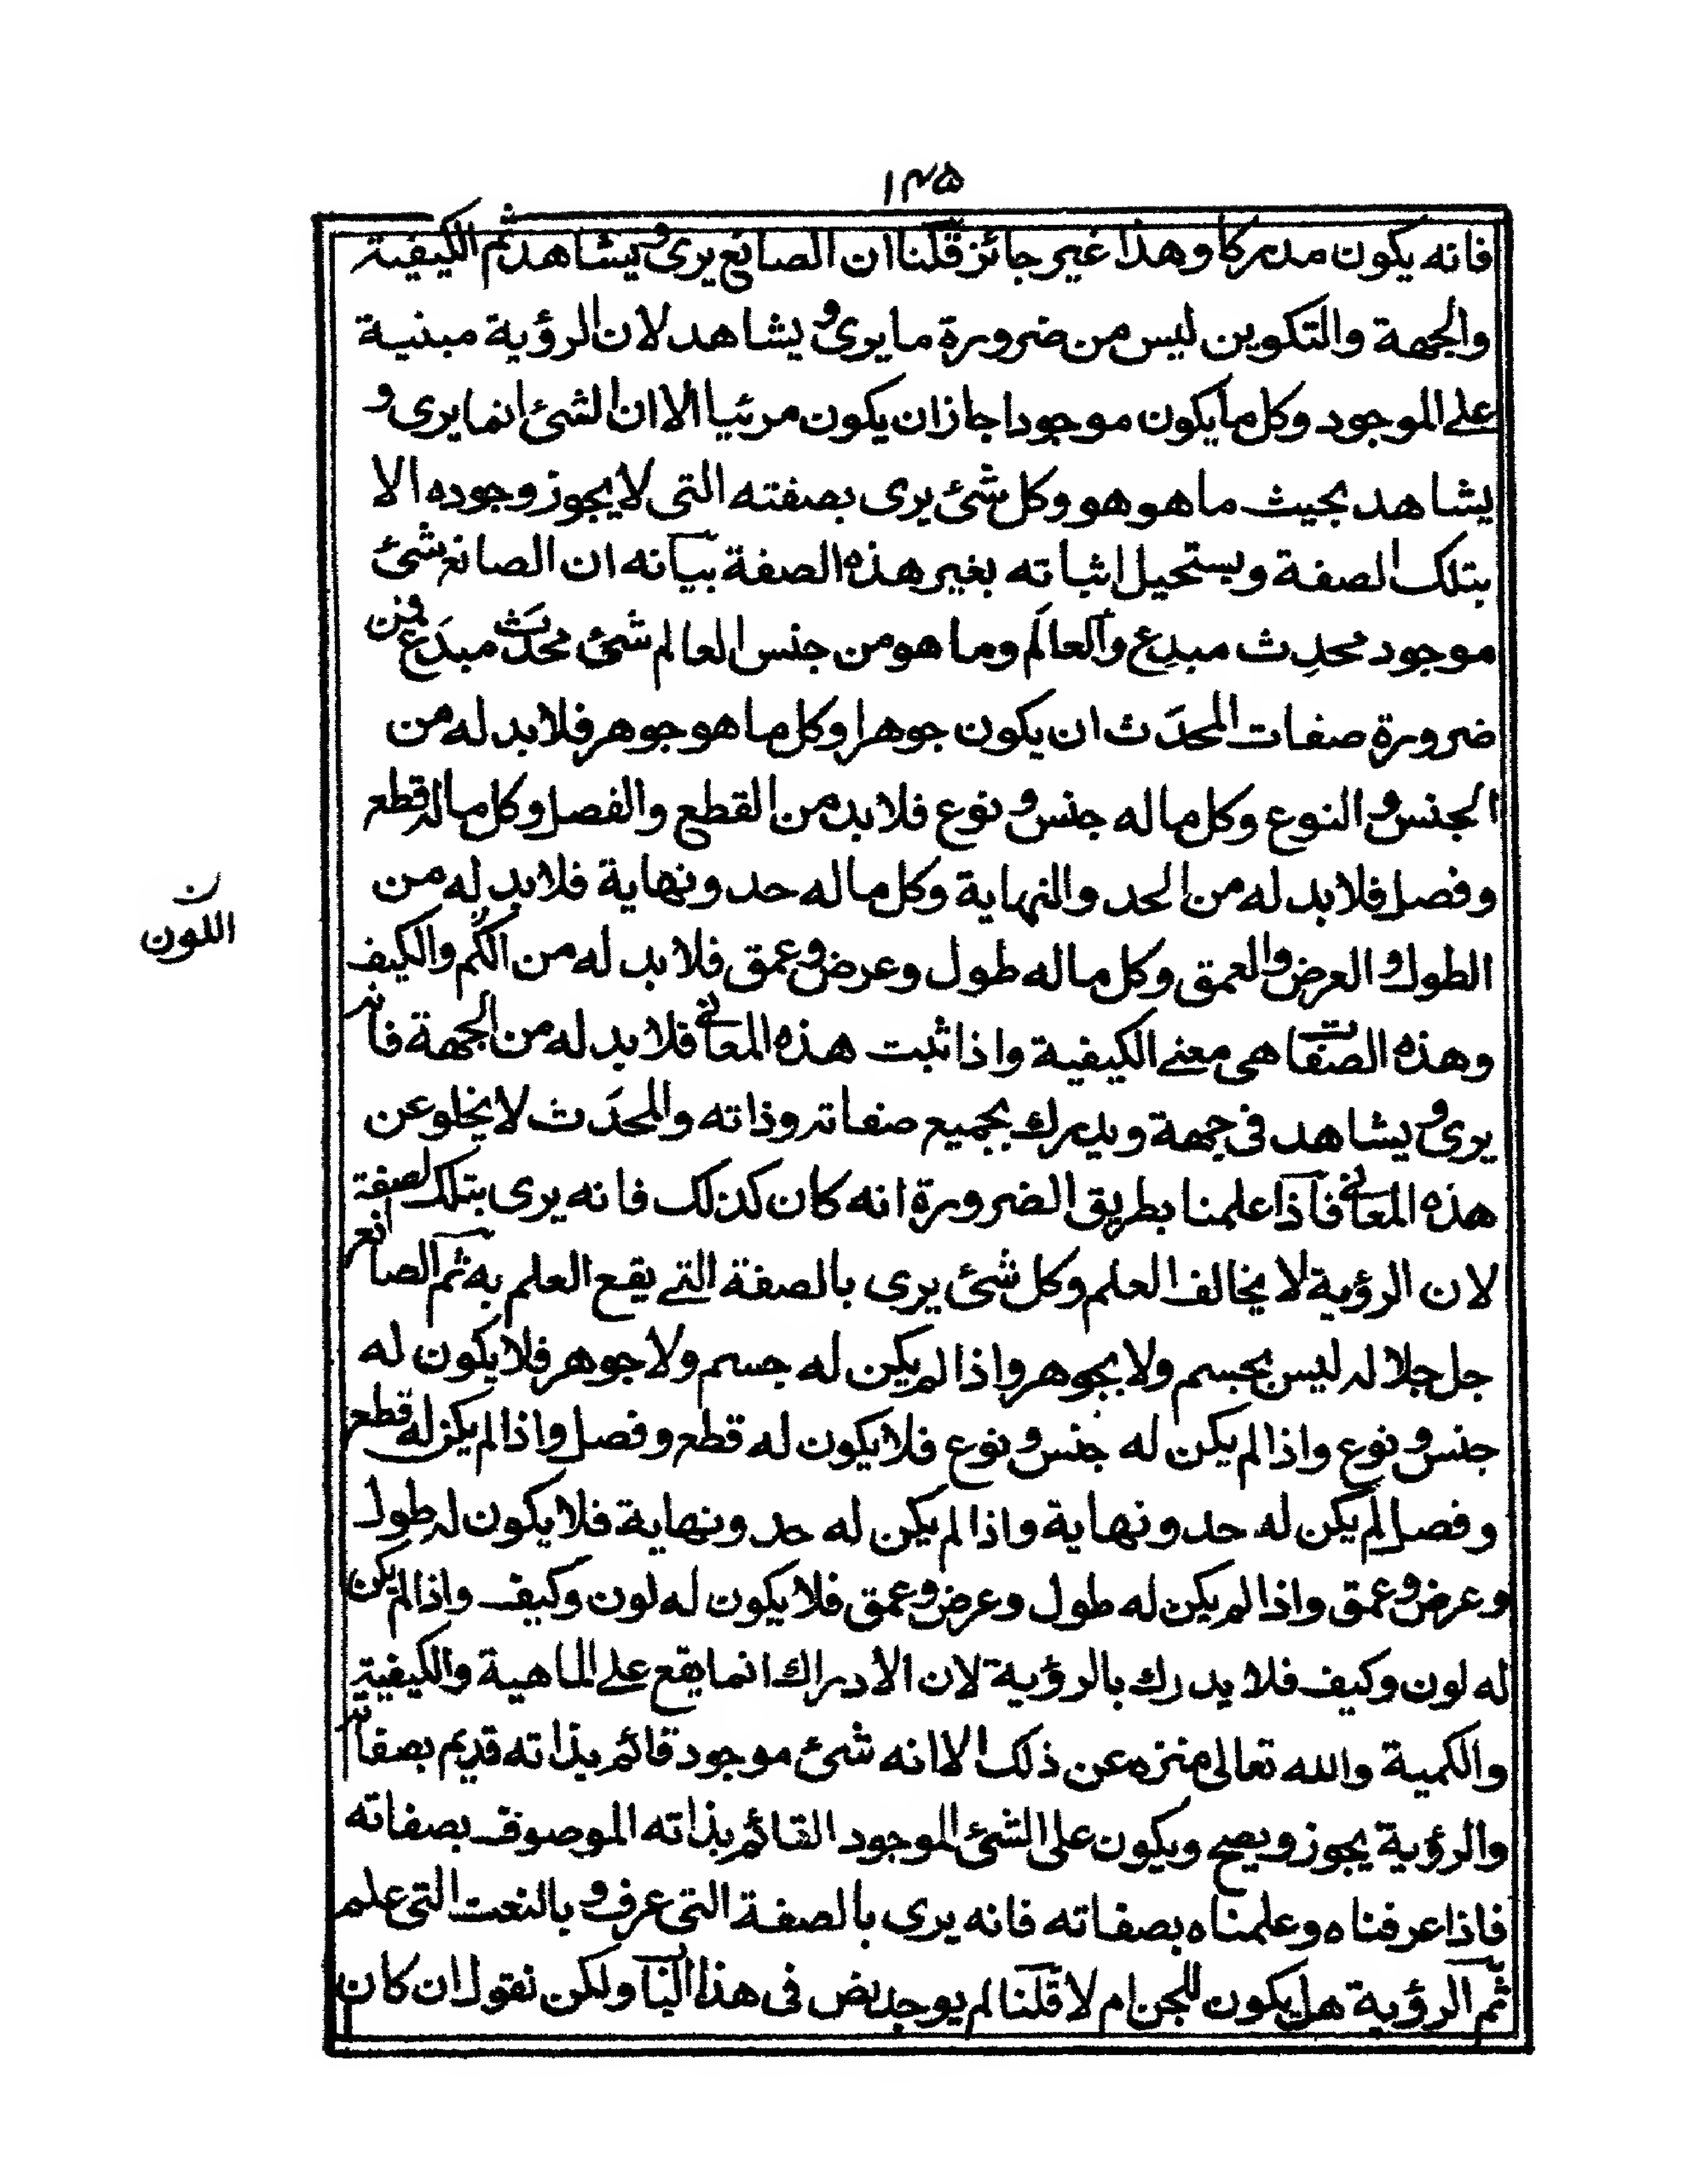 ١٤٥
فانه يكون مدركا وهذا غير جائز قلنا ان الصانع يرى ويشاهد ثم الكيفية
والجهة والتكوين ليس من ضرورة ما يرى ويشاهد لان الرؤية مبنية
على الموجود وكل ما يكون موجودا جاز ان يكون مرئيا الا ان الشئ انما يرى و
يشاهد بحيث ما هو هو وكل شئ يرى بصفته التى لا يجوز وجوده الا
بتلك الصفة ويستحيل اثباته بغير هذه الصفة بيانه ان الصانع شئ
موجود محدِث مبدِع والعالَم وما هو من جنس العالم شئ محدَث مبدَع فمن
ضرورة صفات المحدَث ان يكون جوهرا وكل ما هو جوهر فلا بد له من
الجنس والنوع وكل ما له جنس ونوع فلا بد من القطع والفصل وكل ما له قطع
وفصل فلا بد له من الحد والنهاية وكل ما له حد ونهاية فلا بد له من
الطول والعرض والعمق وكل ما له طول وعرض وعمق فلا بد له من الكم والكيف
ن
اللون
وهذه الصفات هى معنے الكيفية واذا ثبت هذه المعانے فلا بد له من الجهة فانه
يرى ويشاهد فى جهة ويدرك بجميع صفاته وذاته والمحدَث لا يخلو عن
هذه المعانے فاذا علمنا بطريق الضرورة انه كان كذلك فانه يرى بتلك الصفة
لان الرؤية لا يخالف العلم وكل شئ يرى بالصفة التے يقع العلم به ثم الصانع
جل جلاله ليس بجسم ولا بجوهر واذا لم يكن له جسم ولا جوهر فلا يكون له
جنس ونوع واذا لم يكن له جنس ونوع فلا يكون له قطع وفصل واذا لم يكن له قطع
وفصل لم يكن له حد ونهاية واذا لم يكن له حد ونهاية فلا يكون له طول
وعرض وعمق واذا لم يكن له طول وعرض وعمق فلا يكون له لون وكيف واذا لم يكن
له لون وكيف فلا يدرك بالرؤية لان الادراك انما يقع على الماهية والكيفية
والكمية والله تعالى منزه عن ذلك الا انه شئ موجود قائم بذاته قديم بصفاته
والرؤية يجوز ويصح ويكون على الشئ الموجود القائم بذاته الموصوف بصفاته
فاذا عرفناه وعلمناه بصفاته فانه يرى بالصفة التى عرف و بالنعت التى علم
ثم الرؤية هل يكون للجن ام لا قلنا لم يوجد نص فى هذا الباب ولكن نقول ان كان